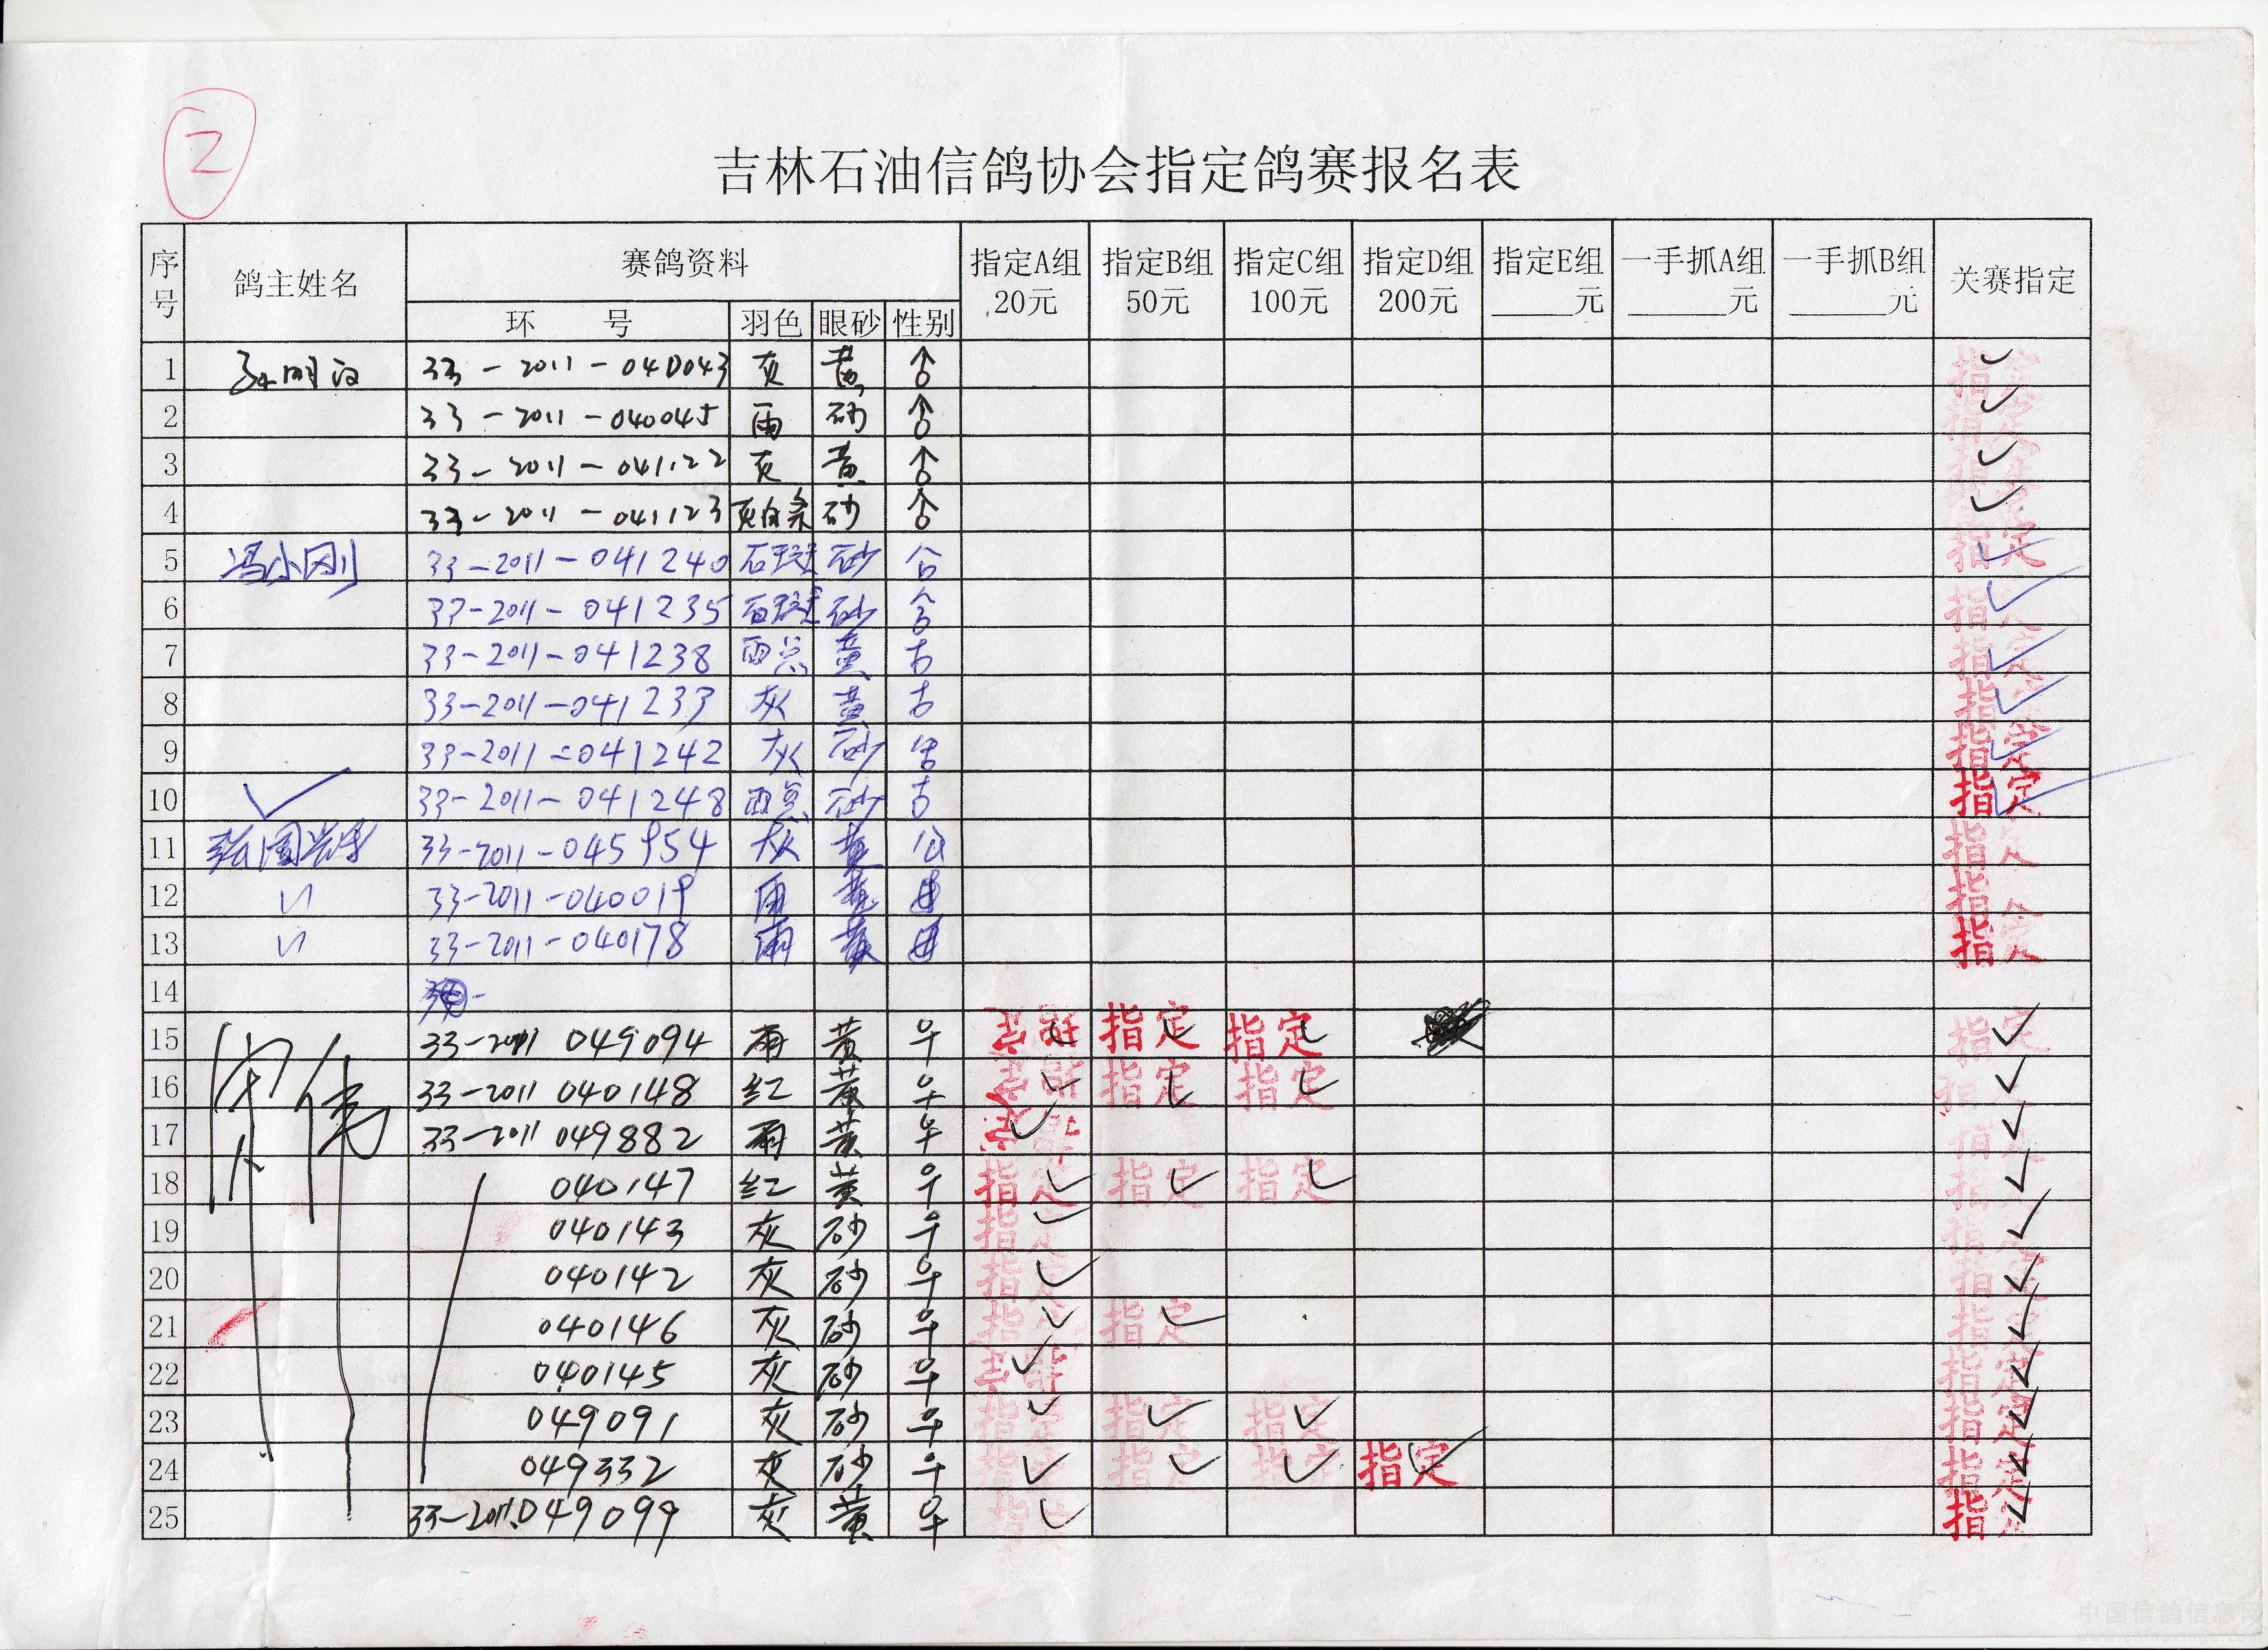 2
吉林石油信鸽协会指定鸽赛报名表
序号 鸽主姓名 赛鸽资料 指定A组 20元 指定B组 50元 指定C组 100元 指定D组 200元 指定E组 _____元 一手抓A组 _____元 一手抓B组 _____元 关赛指定
环 号 羽色 眼砂 性别
1 33-2011-040043 灰 黄 ✓ 指定
2 33-2011-040045 雨 砂 ✓ 指定
3 33-2011-041122 灰 黄 ✓ 指定
4 33-2011-041123 灰白条 砂 ✓ 指定
5 冯小刚 33-2011-041240 石斑 砂 ✓ 指定
6 33-2011-041235 石斑 砂 ✓ 指定
7 33-2011-041238 雨点 黄 ✓ 指定
8 33-2011-041233 灰 黄 ✓ 指定
9 33-2011-041242 灰 砂 ✓ 指定
10 ✓ 33-2011-041248 雨点 砂 ✓ 指定
11 张国 33-2011-045954 灰 黄 公 指定
12 33-2011-040019 雨 黄 指定
13 33-2011-040178 雨 黄 指定
14
15 伟 33-2011 049094 雨 黄 ♀ 指定 ✓ 指定 ✓ 指定 ✓ 指定 ✓
16 33-2011 040148 红 黄 ♀ 指定 ✓ 指定 ✓ 指定 ✓ 指定 ✓
17 33-2011 049882 雨 黄 ♀ 指定 ✓ 指定 ✓
18 040147 红 黄 ♀ 指定 ✓ 指定 ✓ 指定 ✓ 指定 ✓
19 040143 灰 砂 ♀ 指定 ✓ 指定 ✓
20 040142 灰 砂 ♀ 指定 ✓ 指定 ✓
21 040146 灰 砂 ♀ 指定 ✓ 指定 ✓ 指定 ✓
22 040145 灰 砂 ♀ 指定 ✓ 指定 ✓
23 049091 灰 砂 ♀ 指定 ✓ 指定 ✓ 指定 ✓ 指定 ✓
24 049332 灰 砂 ♀ 指定 ✓ 指定 ✓ 指定 ✓ 指定 ✓ 指定 ✓
25 33-2011.049099 灰 黄 ♀ 指定 ✓ 指定 ✓
中国信鸽信息网